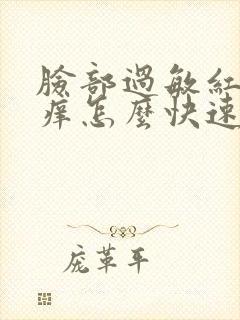 臉部過敏紅
痒怎麼快速
庞革平